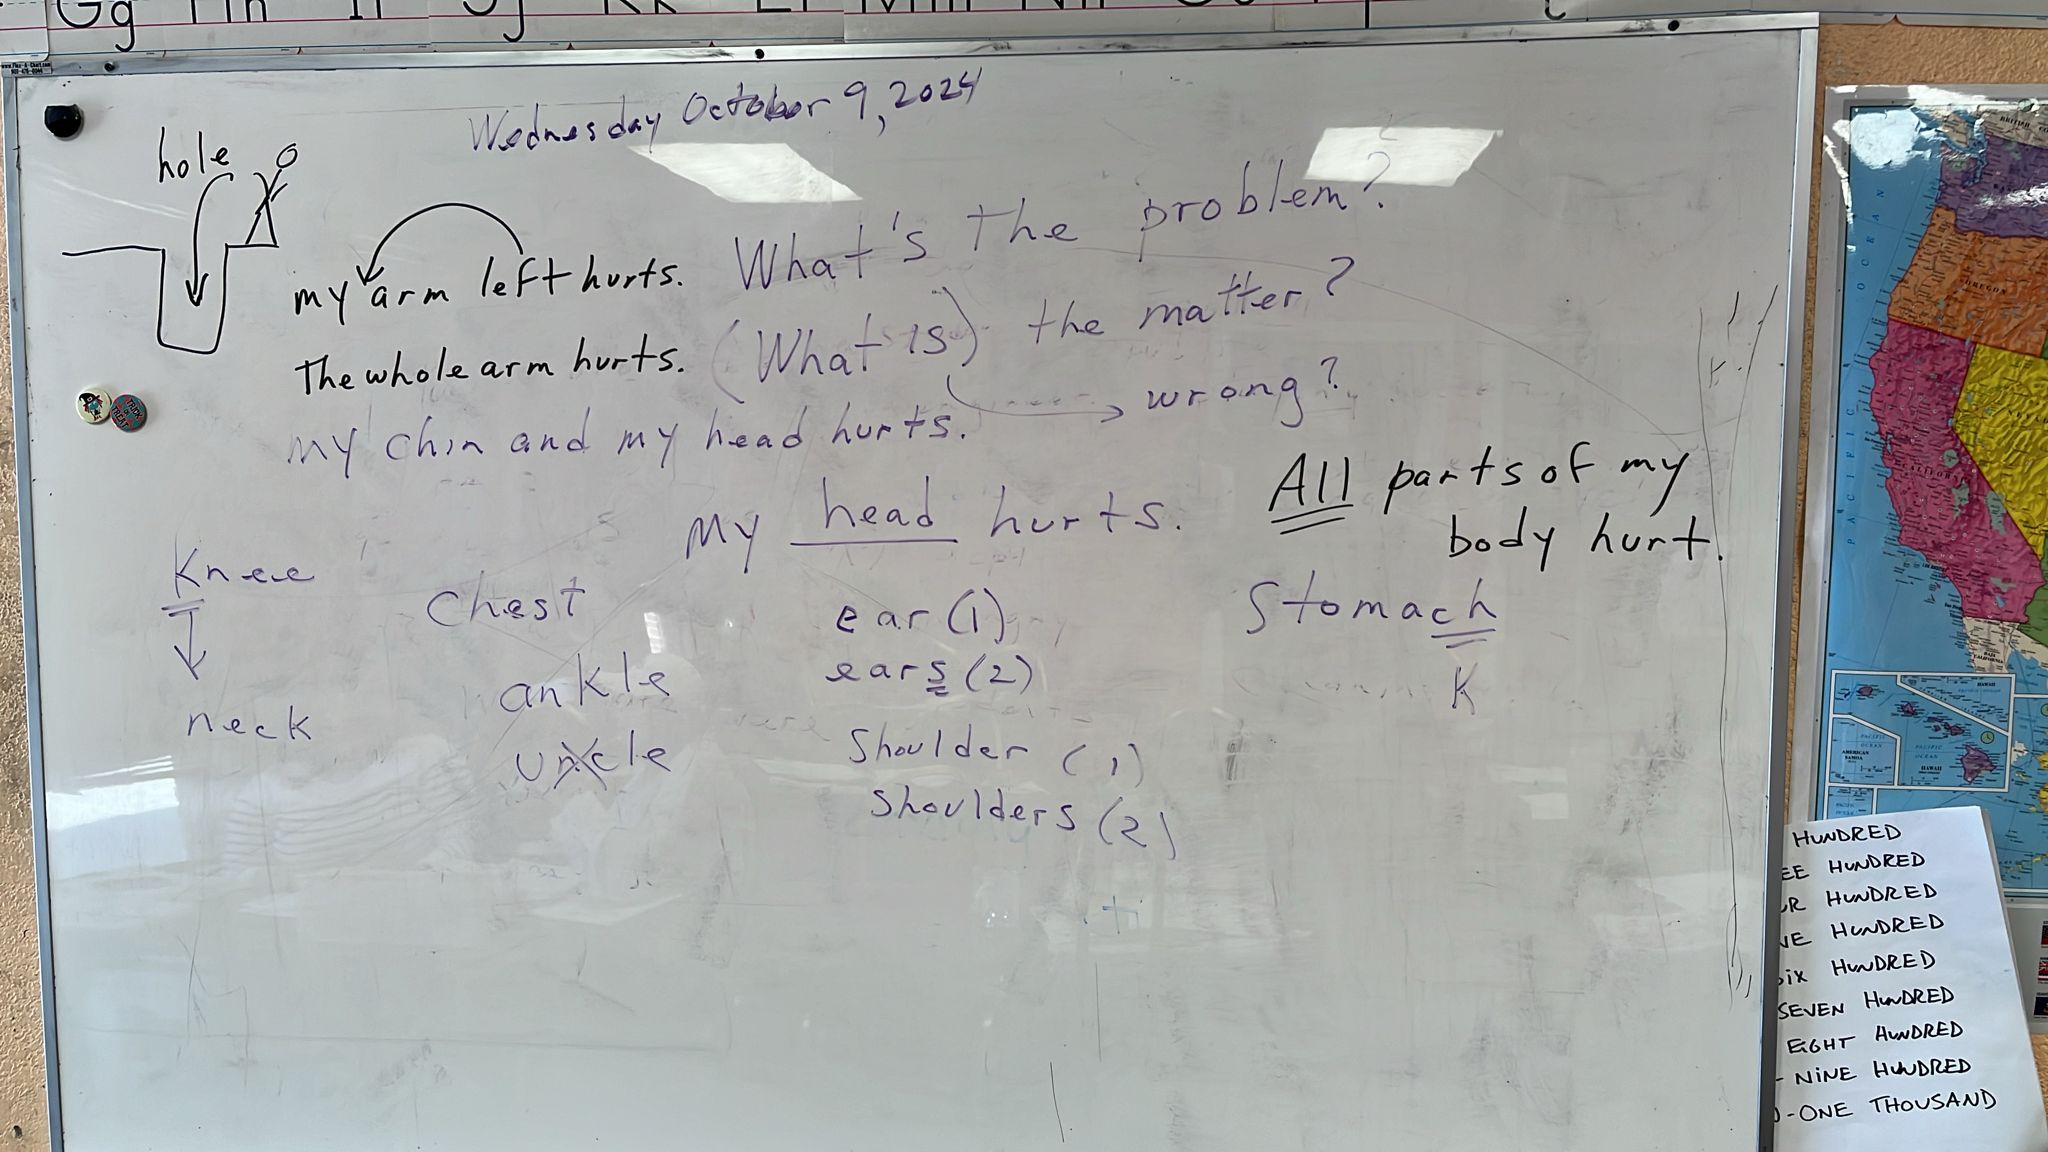 Gg
Wednesday October 9, 2024
hole
my arm left hurts.
What's the problem?
The whole arm hurts.
(What is) the matter?
wrong?
My chin and my head hurts.
My head hurts.
All parts of my
body hurt.
Knee
neck
Chest
ankle
uncle
ear (1)
ears (2)
Shoulder (1)
Shoulders (2)
Stomach
K
TRICK OR TREAT
PACIFIC OCEAN
OREGON
CALIFORNIA
HAWAII
AMERICAN SAMOA
PACIFIC OCEAN
HAWAII
HUNDRED
EE HUNDRED
UR HUNDRED
VE HUNDRED
SIX HUNDRED
SEVEN HUNDRED
EIGHT HUNDRED
- NINE HUNDRED
-ONE THOUSAND